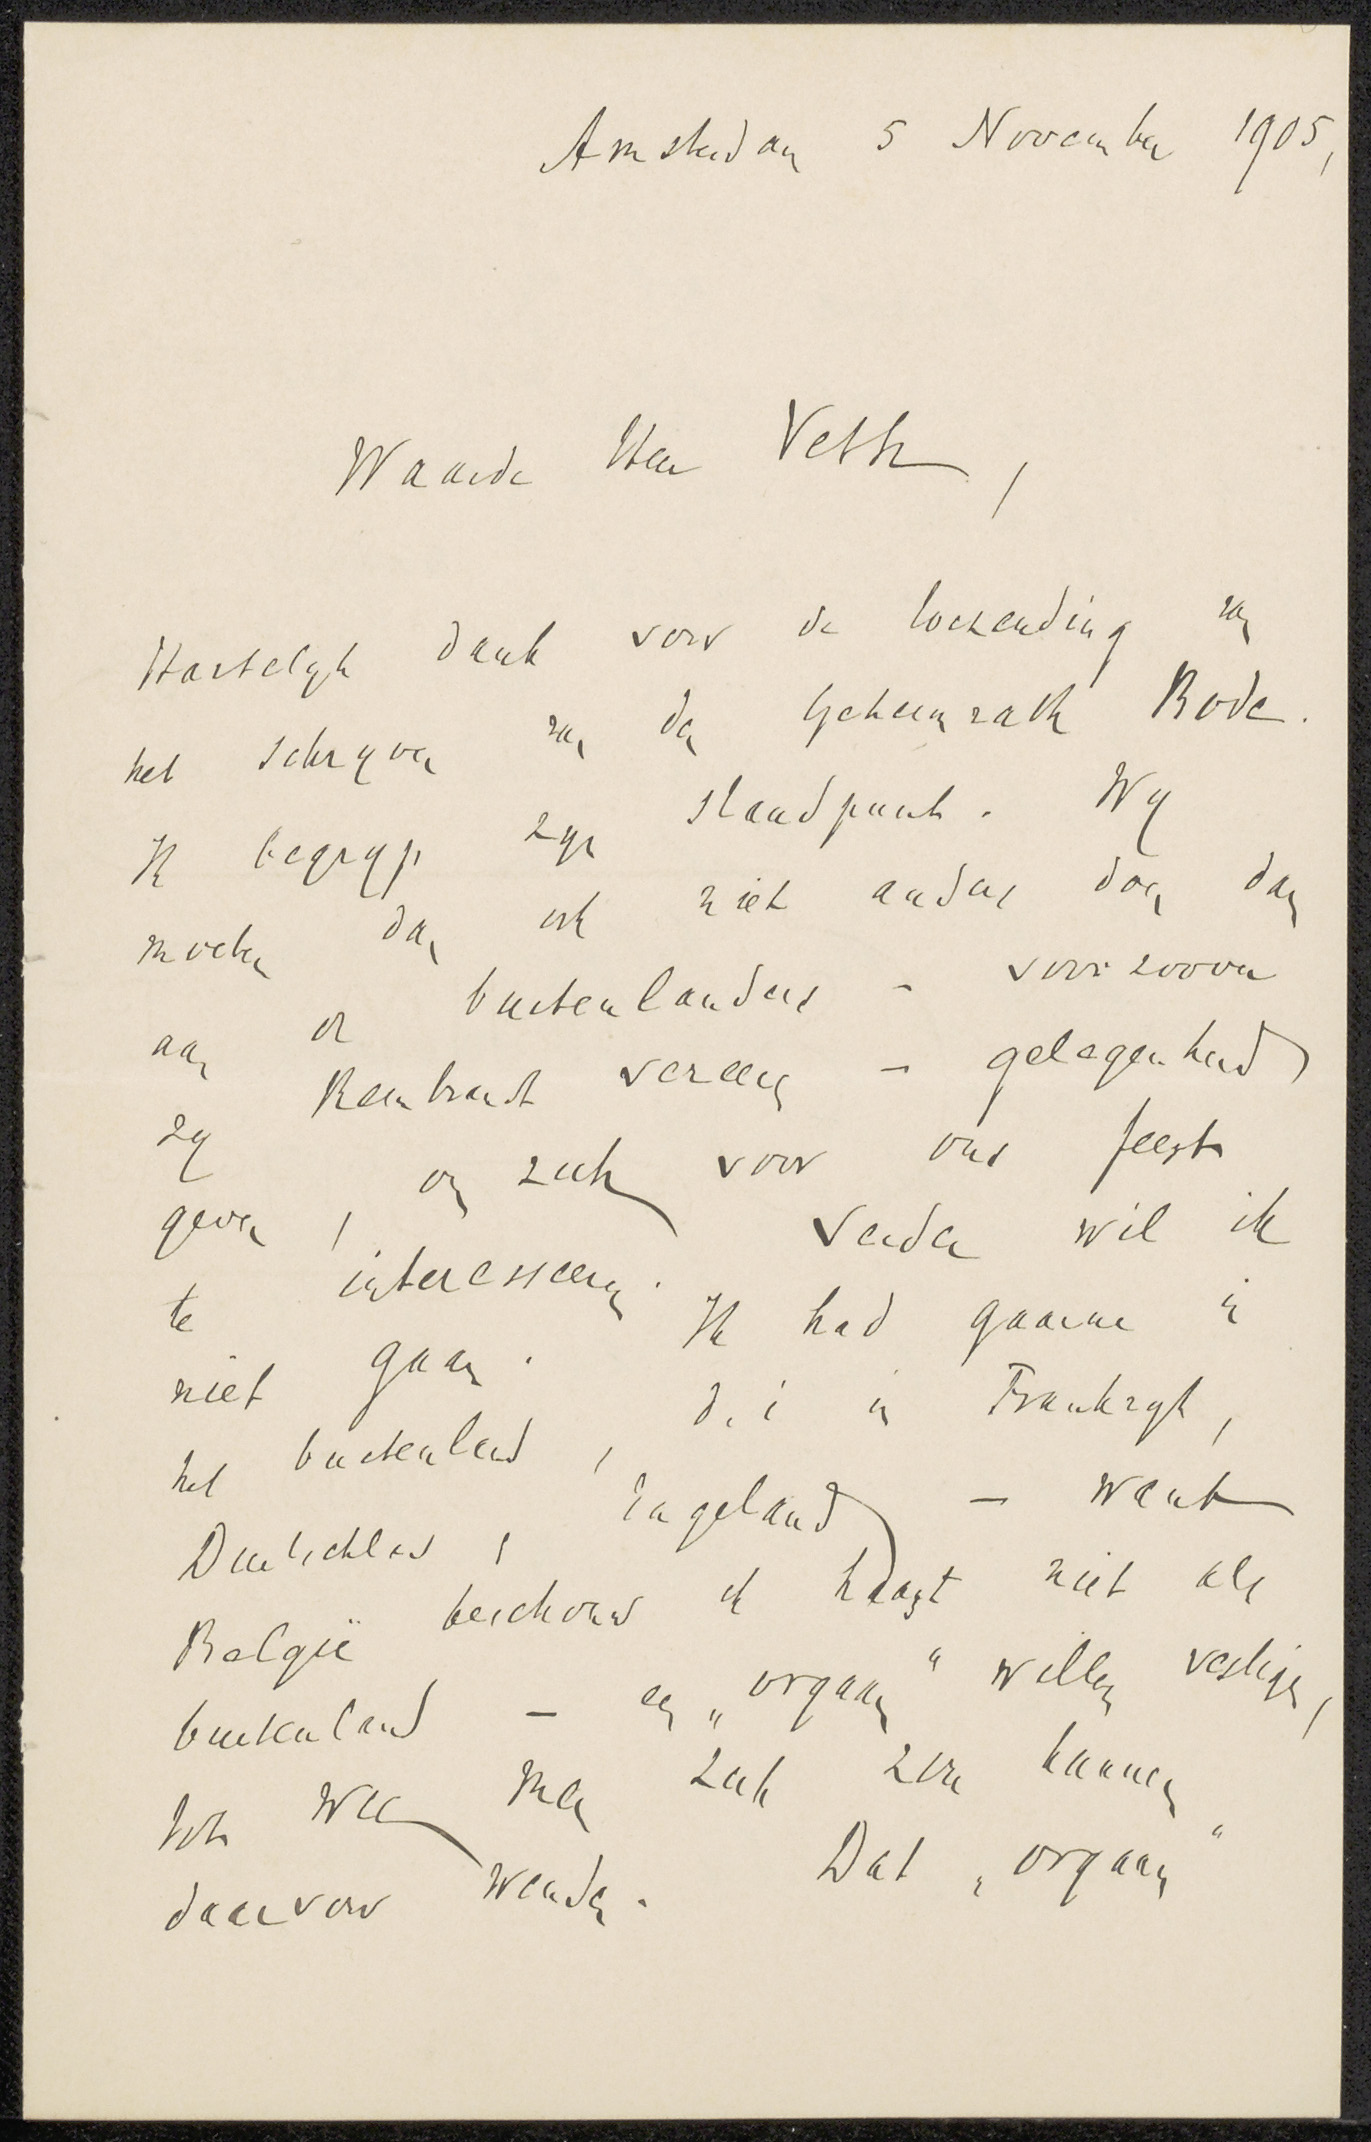 Amsterdam 5 November 1905,
Waarde Heer Veth,
Hartelyk dank voor de toezending van
het schryven van den Geheimrath Bode.
Ik begryp zyn standpunt. Wy
moeten dan ook niet anders doen dan
aan de buitenlanders – voorzoover
zy Rembrandt vereeren – gelegenheid
geven, om zich voor ons feest
te interesseeren. Verder wil ik
niet gaan. Ik had gaarne in
het buitenland, d.i in Frankryk,
Duitschland, Engeland – want
België beschouw ik haast niet als
buitenland – een „orgaan" willen vestigen,
tot wien men zich zou kunnen
daarvoor wenden. Dat „orgaan"